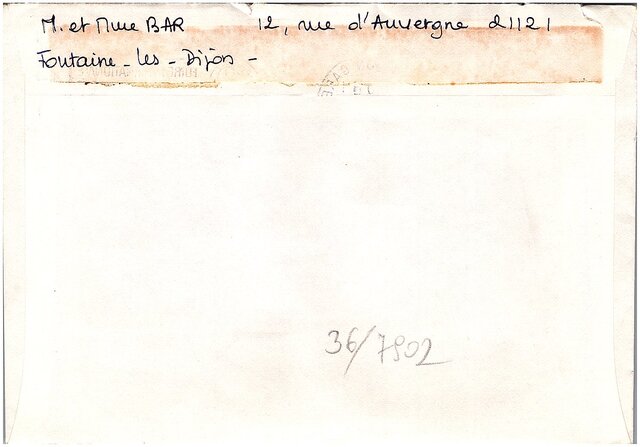 M. et Mme BAR 12, rue d'Auvergne 21121
Fontaine-les-Dijon-
36/7902